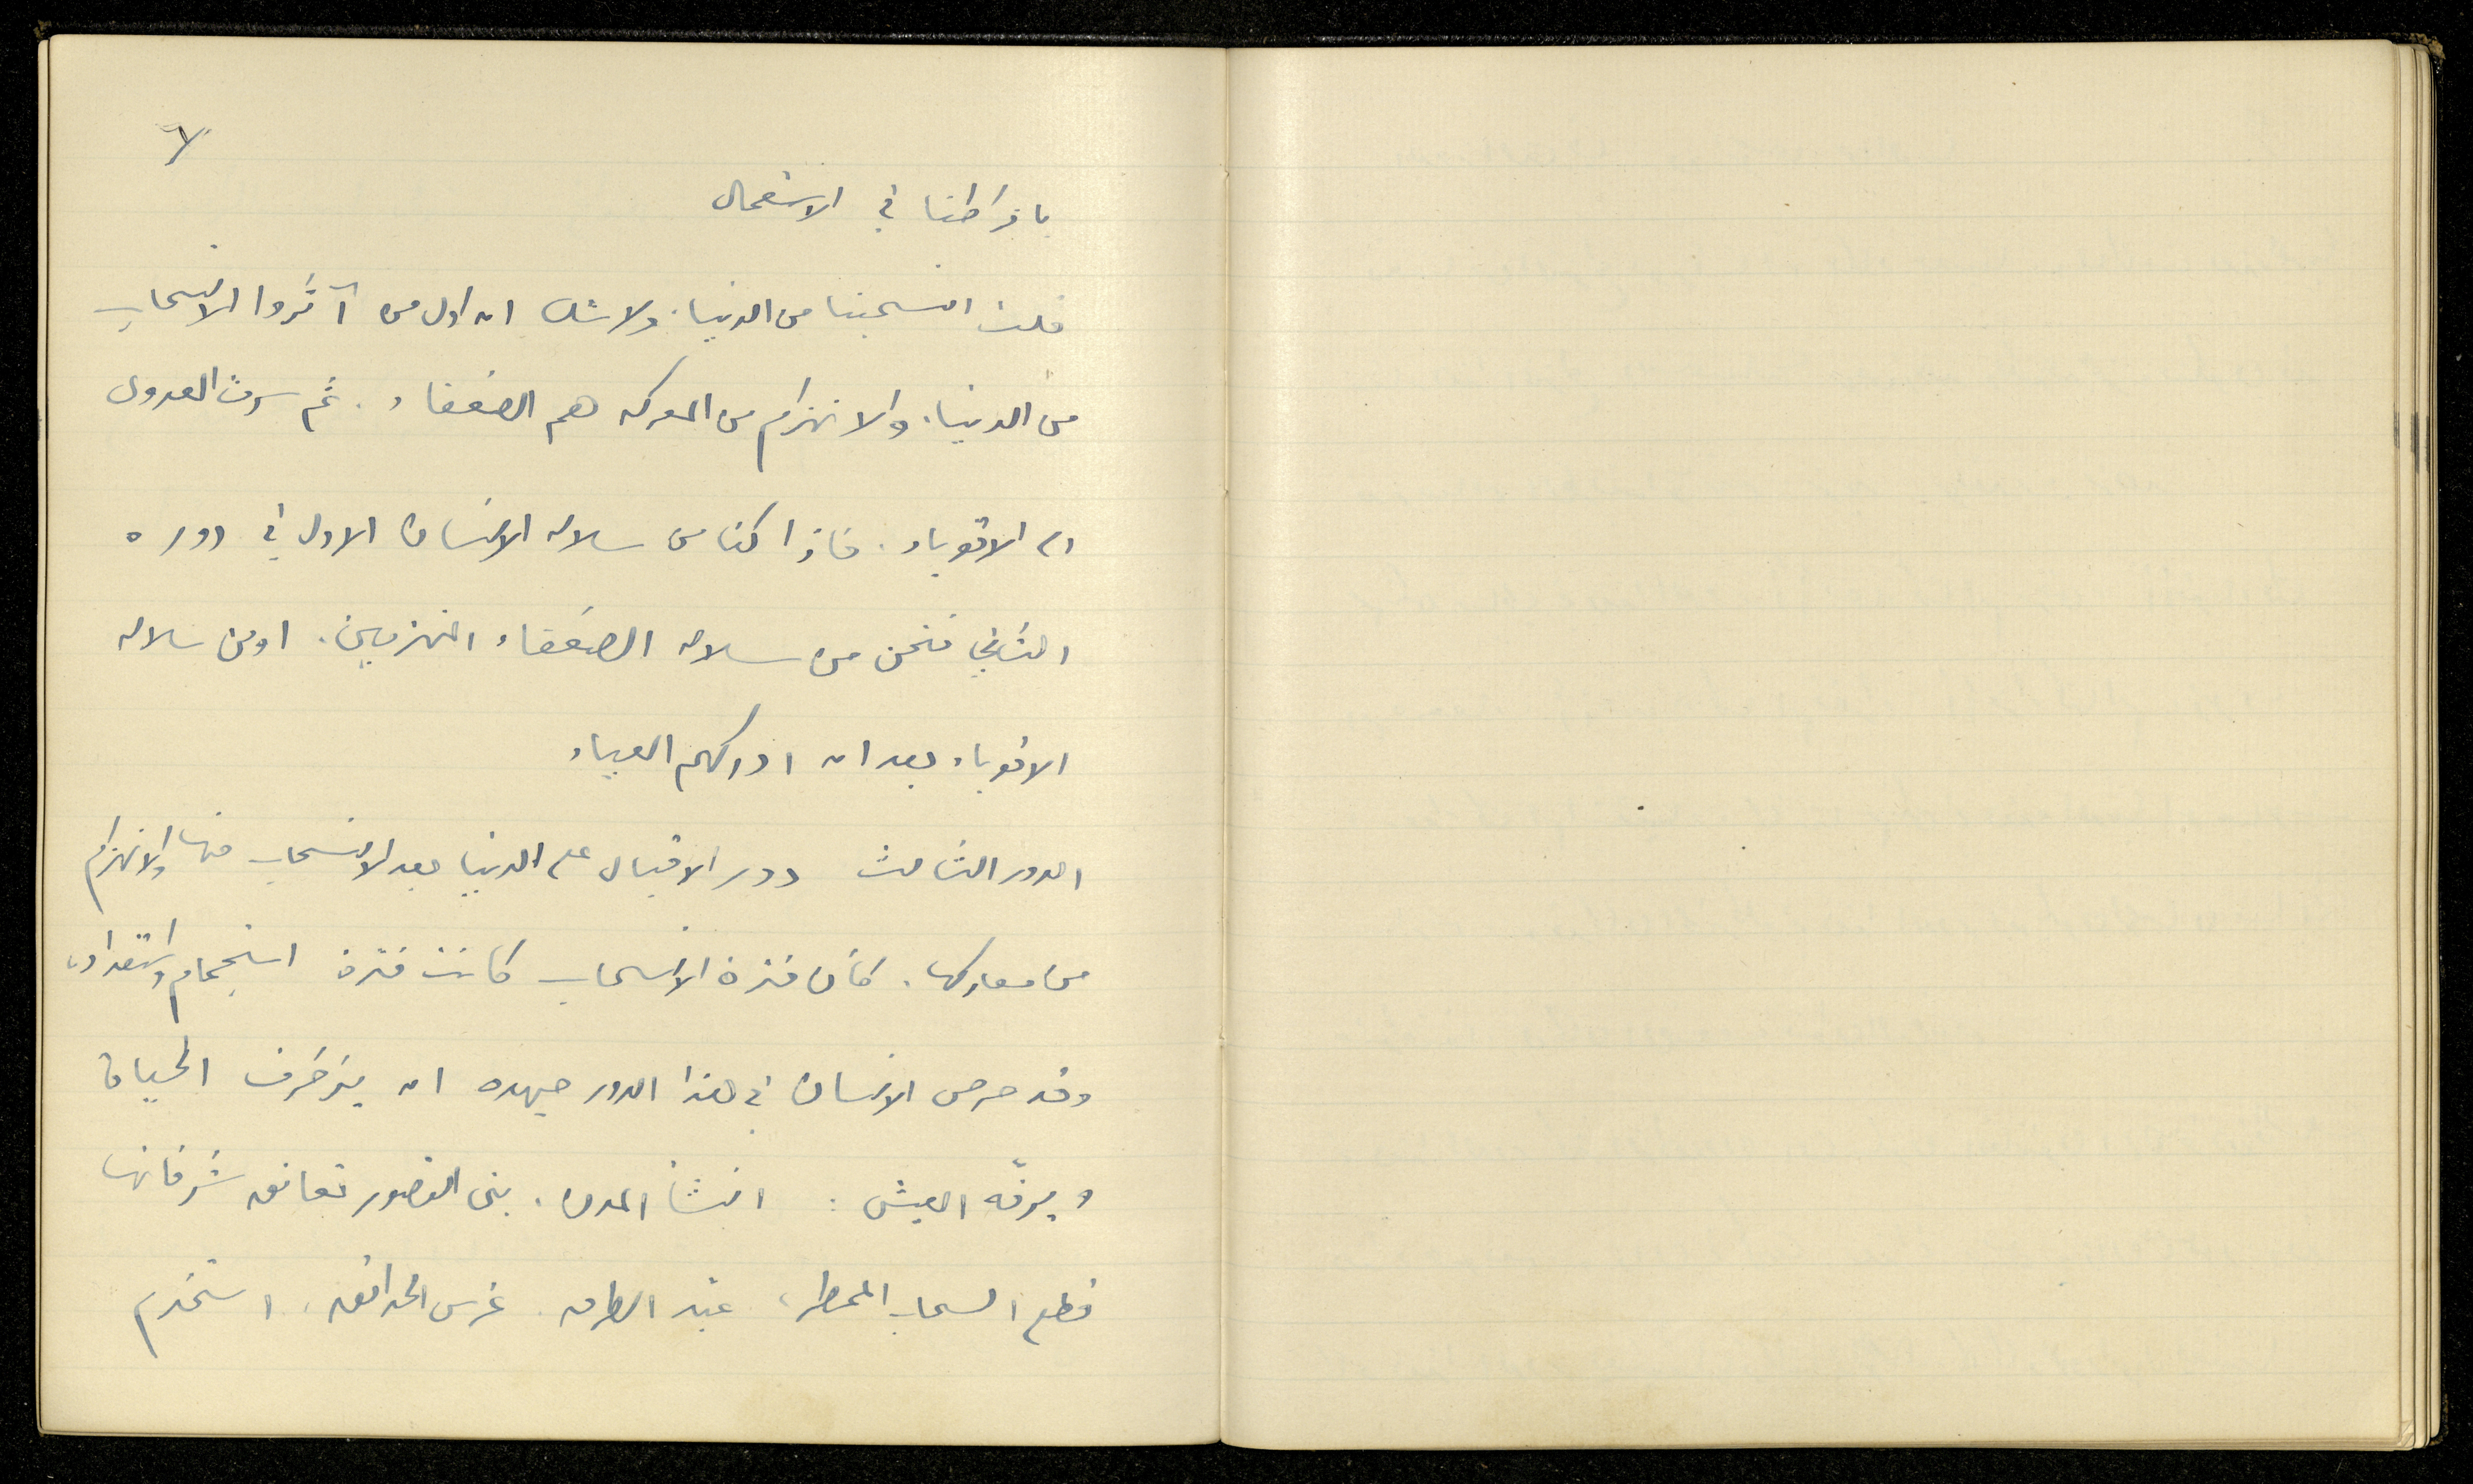 لا
بافراطنا في الاستعمال
قلت انسحبنا من الدنيا. ولا شك ان اول من آثروا الانسحاب
من الدنيا. والانهزام من المعركه هم الضعفاء. ثم سرت العدوى
الى الاقوياء. فاذا كنا من سلاله الانسان الاول في دوره
الثاني فنحن من سلاله الضعفاء المنهزمين. او من سلاله
الاقوياء بعد ان ادركهم العياء
الدور الثالث دور الاقبال على الدنيا بعد الانسحاب منها والانهزام
من معاركها. كأن فترة الانسحاب كانت فترة استجمام واستعداد،
وقد حرص الانسان في هذا الدور جهده ان يزخرف الحياة
ويرفّه العيش: انشأ المدن. بنى القصور تعانق شرفاتها
قطع السحاب الممطر، عبّد الطرق. غرس الحدائق، استخدم